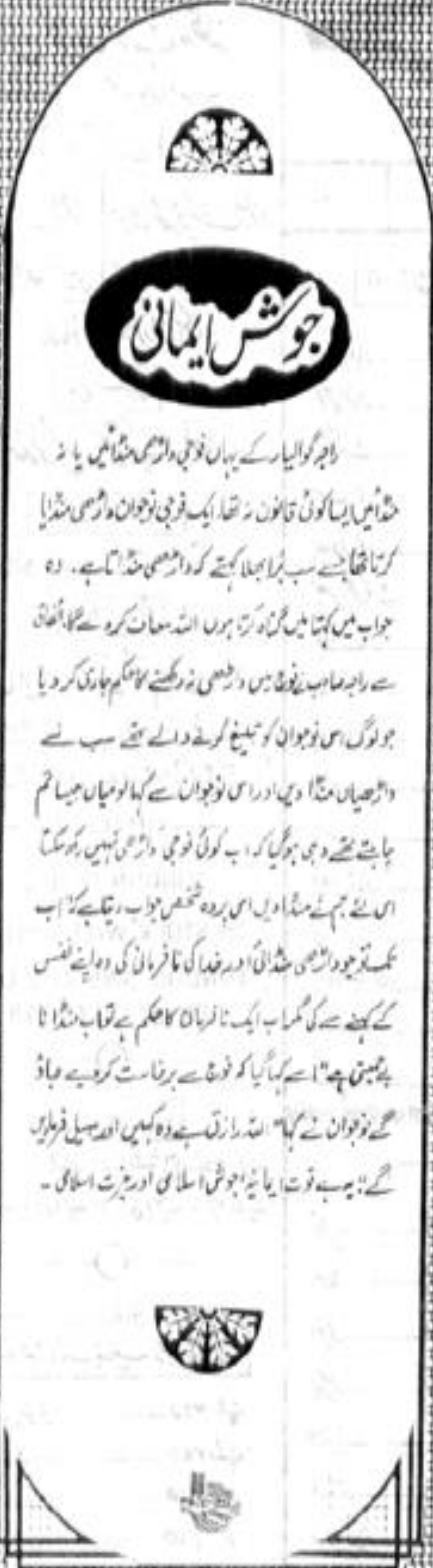 جوش ایمانی
راجہ گوالیار کے یہاں فوجی داڑھی منڈائیں یا نہ
منڈائیں ایسا کوئی قانون نہ تھا ایک فوجی نوجوان داڑھی منڈایا
کرتا تھا جسے سب بُرا بھلا کہتے کہ داڑھی منڈاتا ہے۔ وہ
جواب میں کہتا میں گناہ کرتا ہوں اللہ معاف کردے گا، اتفاق
سے راجہ صاحب نے فوج میں داڑھی نہ رکھنے کا حکم جاری کر دیا
جو لوگ اس نوجوان کو تبلیغ کرنے والے تھے سب نے
داڑھیاں منڈا دیں اور اس نوجوان سے کہا لو میاں جیسا تم
چاہتے تھے وہی ہوگیا کہ اب کوئی فوجی داڑھی نہیں رکھ سکتا
اس لئے ہم نے منڈا دیں اس پر وہ شخص جواب دیتا ہے کہ "اب
تک تو جو داڑھی منڈائی اور خدا کی نافرمانی کی وہ اپنے نفس
کے کہنے سے کی مگر اب ایک نافرمان کا حکم ہے تو اب منڈانا
بے حمیتی ہے" اسے کہا گیا کہ فوج سے برخاست کردیے جاؤ
گے نوجوان نے کہا "اللہ رازق ہے وہ کہیں اور سبیل فرمادیں
گے" یہ ہے قوت ایمانیہ، جوش اسلامی اور غیرت اسلامی ۔